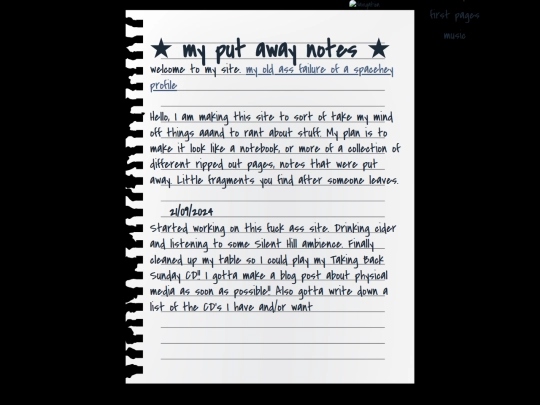 first pages
music
★ my put away notes ★
welcome to my site. my old ass failure of a spacehey
profile
Hello, I am making this site to sort of take my mind
off things aaand to rant about stuff. My plan is to
make it look like a notebook, or more of a collection of
different ripped out pages, notes that were put
away. Little fragments you find after someone leaves.
21/09/2024
Started working on this fuck ass site. Drinking cider
and listening to some Silent Hill ambience. Finally
cleaned up my table so I could play my Taking Back
Sunday CD!! I gotta make a blog post about physical
media as soon as possible!! Also gotta write down a
list of the CD's I have and/or want